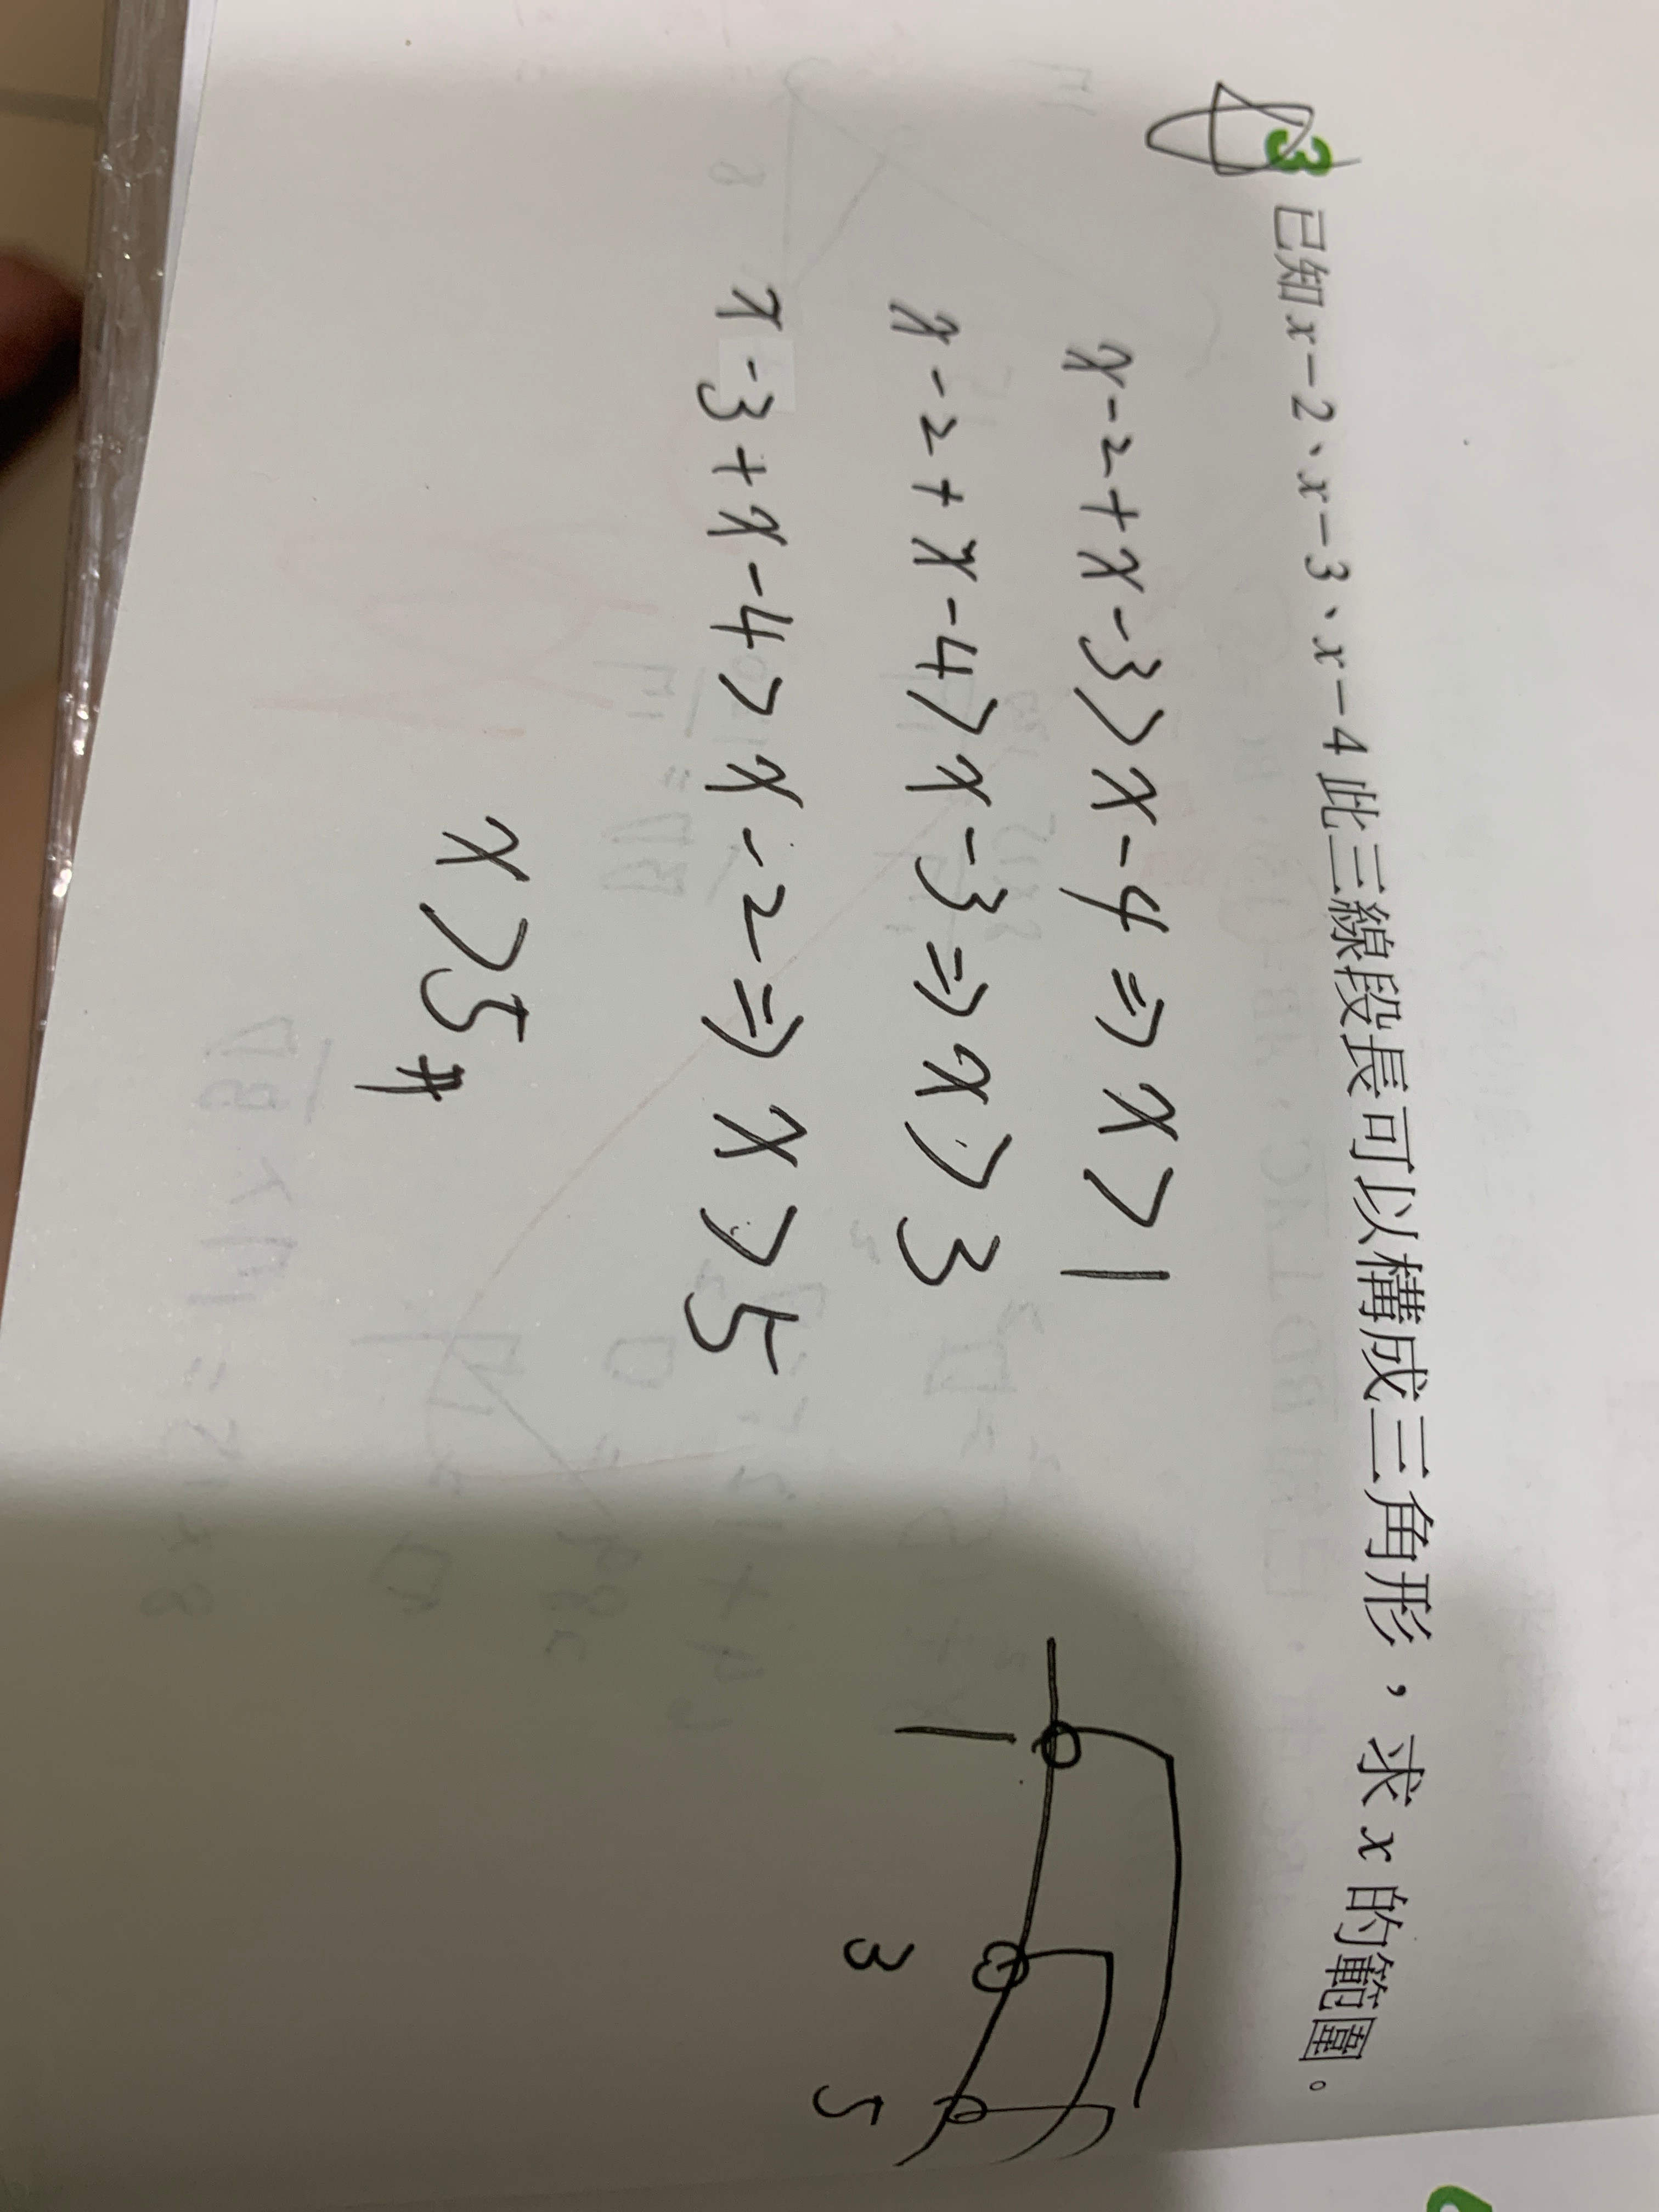 3 已知x−2、x−3、x−4此三線段長可以構成三角形，求x的範圍。
x-2+x-3>x-4⇒x>1
x-2+x-4>x-3⇒x>3
x-3+x-4>x-2⇒x>5
x>5#
1 3 5